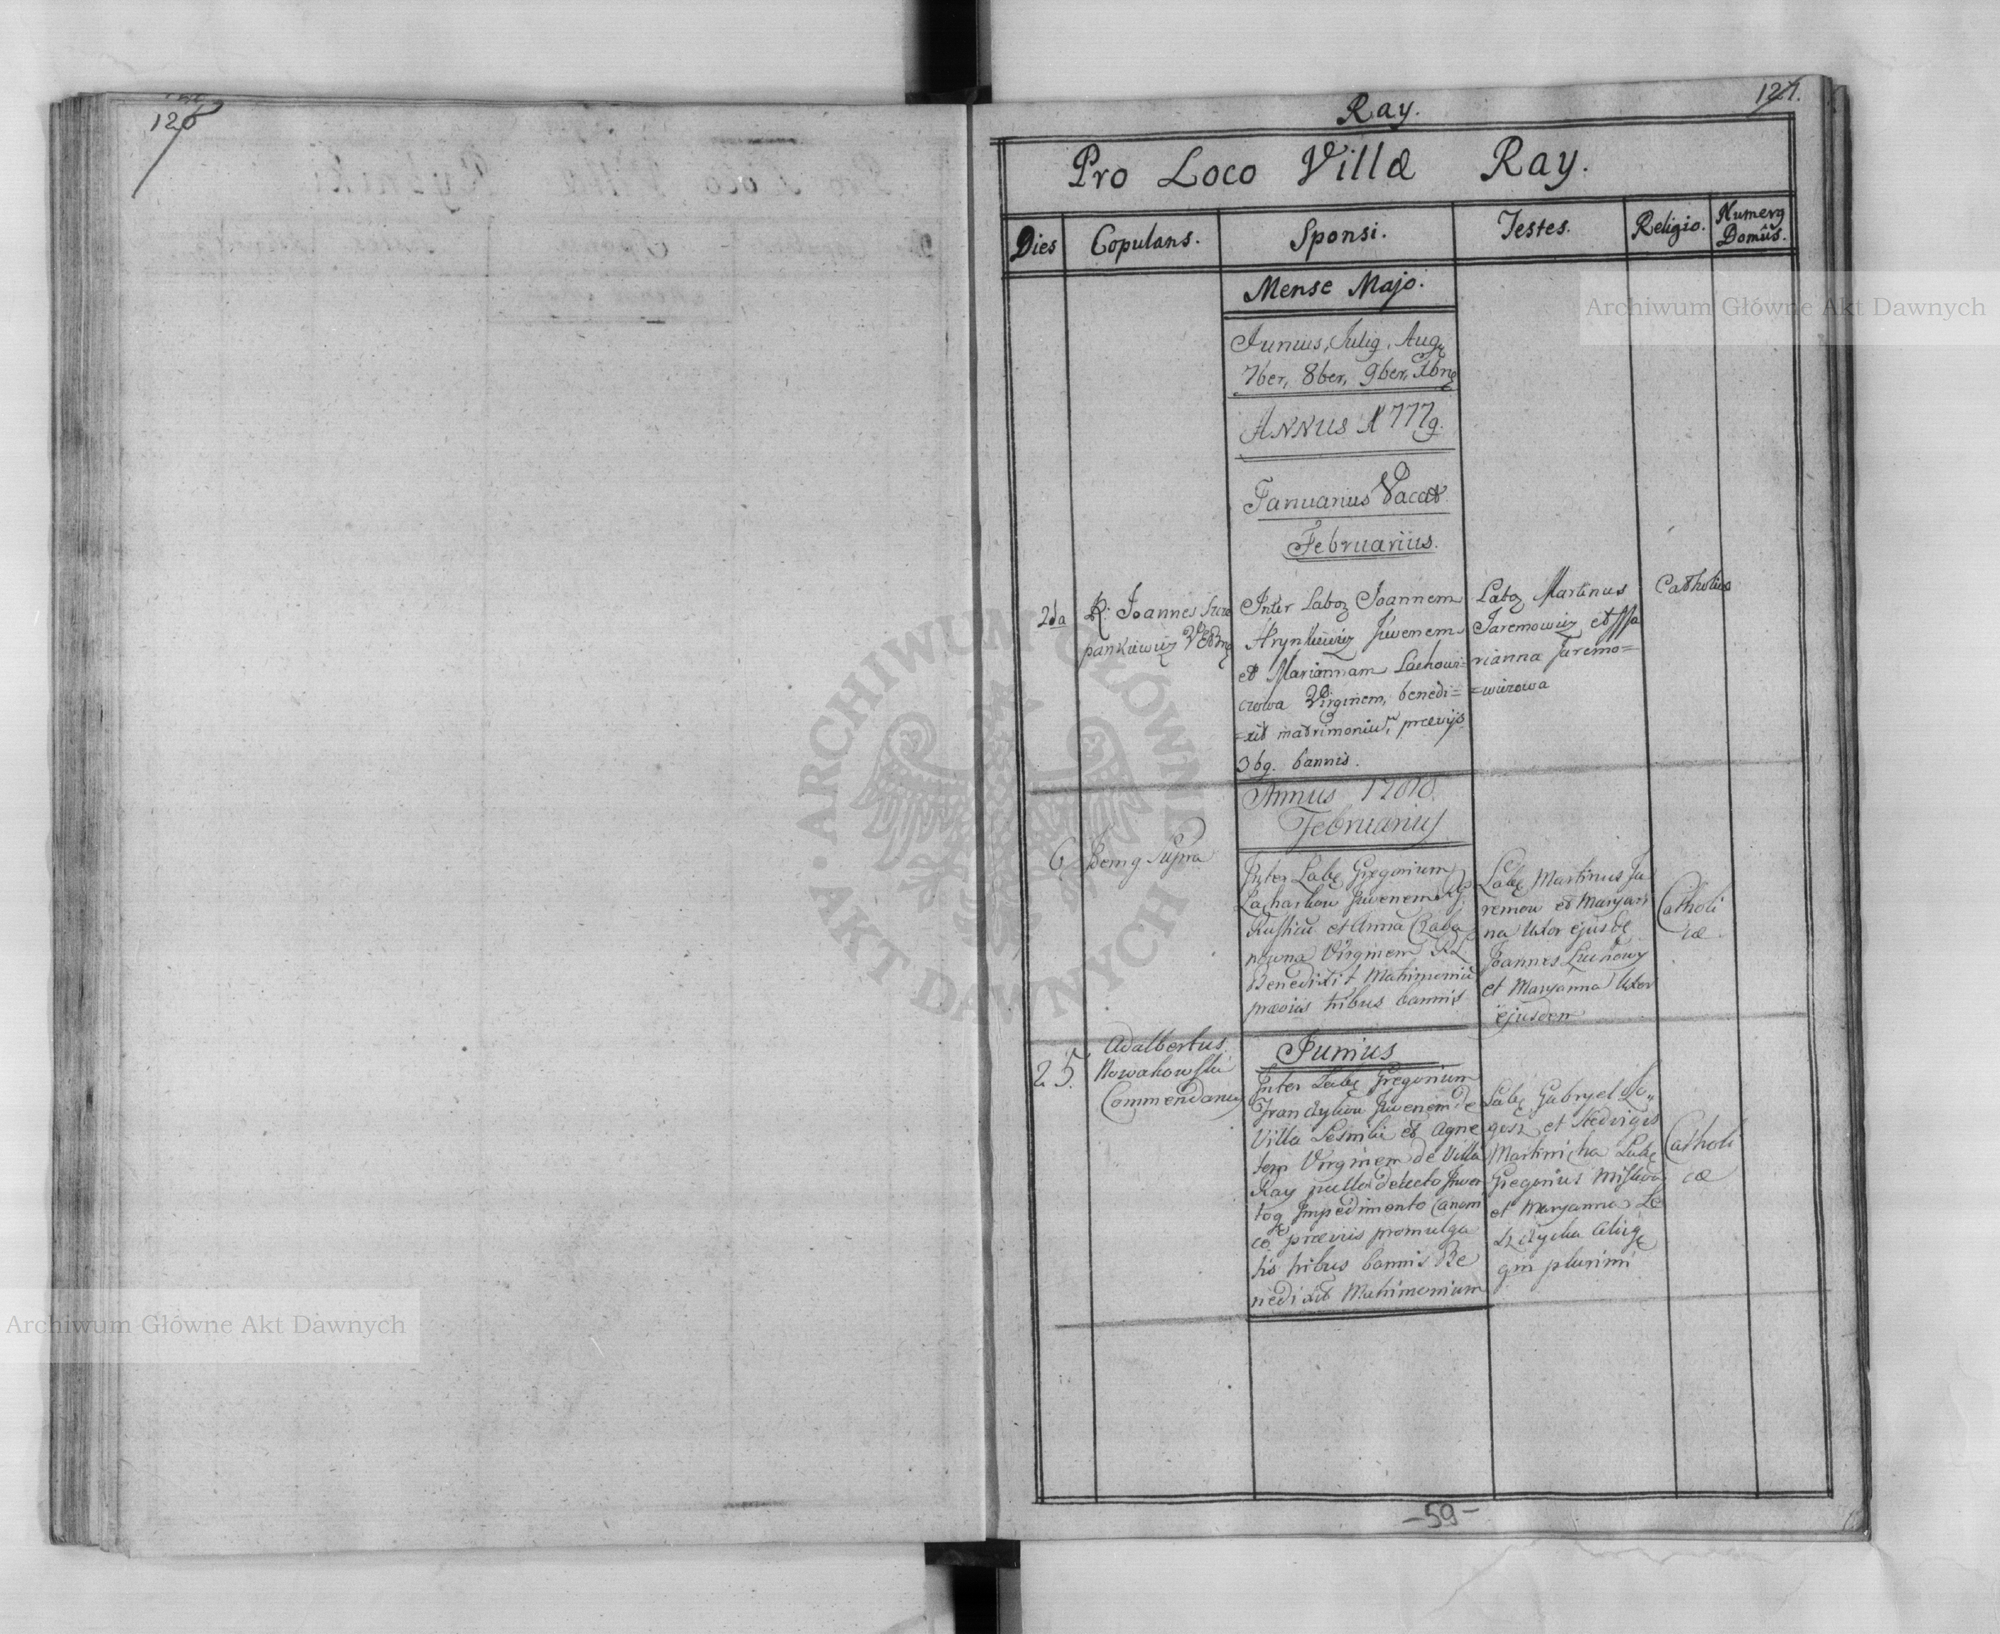 126
127.
Ray.
Pro Loco Villæ Ray.
Dies
Copulans.
Sponsi.
Testes.
Religio.
Numerq
Domûs.
Mense Majo.
Junius, Juliq, Augq
7ber, 8ber, 9ber, Xbrq
ANNUS 1779.
Januarius Vacat
Februarius.
2da
R: Joannes
Inter Laboz Joannem
Hrynkiewicz Juvenem
et Mariannam Lachowi-
czowa Virginem, benedi=
=xit matrimoniu, prævijs
3bq. bannis.
Laboz Martinus
Jaremowicz et Ma
rianna Jaremo=
=wiczowa
Catholica
Annus 1780.
Februarius
6
Idem q Supra
Inter Labq Gregorium
Juvenem
Rusticu et Anna
Virginem
Benedixit Matrimoniu
præviis tribus bannis
Labq Martinus Ja
remow et Maryan
na Uxor ejusdq
Joannes
et Maryanna Uxor
ejusdem
Catholi
cæ
25.
Adalbertus
Nowakowski
Commendariq
Junius
Inter Labq Gregorium
Juvenem de
Villa Lesniki et Agne
tem Virginem de Villa
Ray nullo detecto Inter
Impedimento Canoni
co præviis promulga
tis tribus bannis Be
nedixit Matrimonium
Labq Gabryel
et Hedvigis
Labq
Gregorius
et Maryanna
aliiq
qm plurimi
Catholi
cæ
-59-
Archiwum Główne Akt Dawnych
Archiwum Główne Akt Dawnych
ARCHIWUM GŁÓWNE AKT DAWNYCH